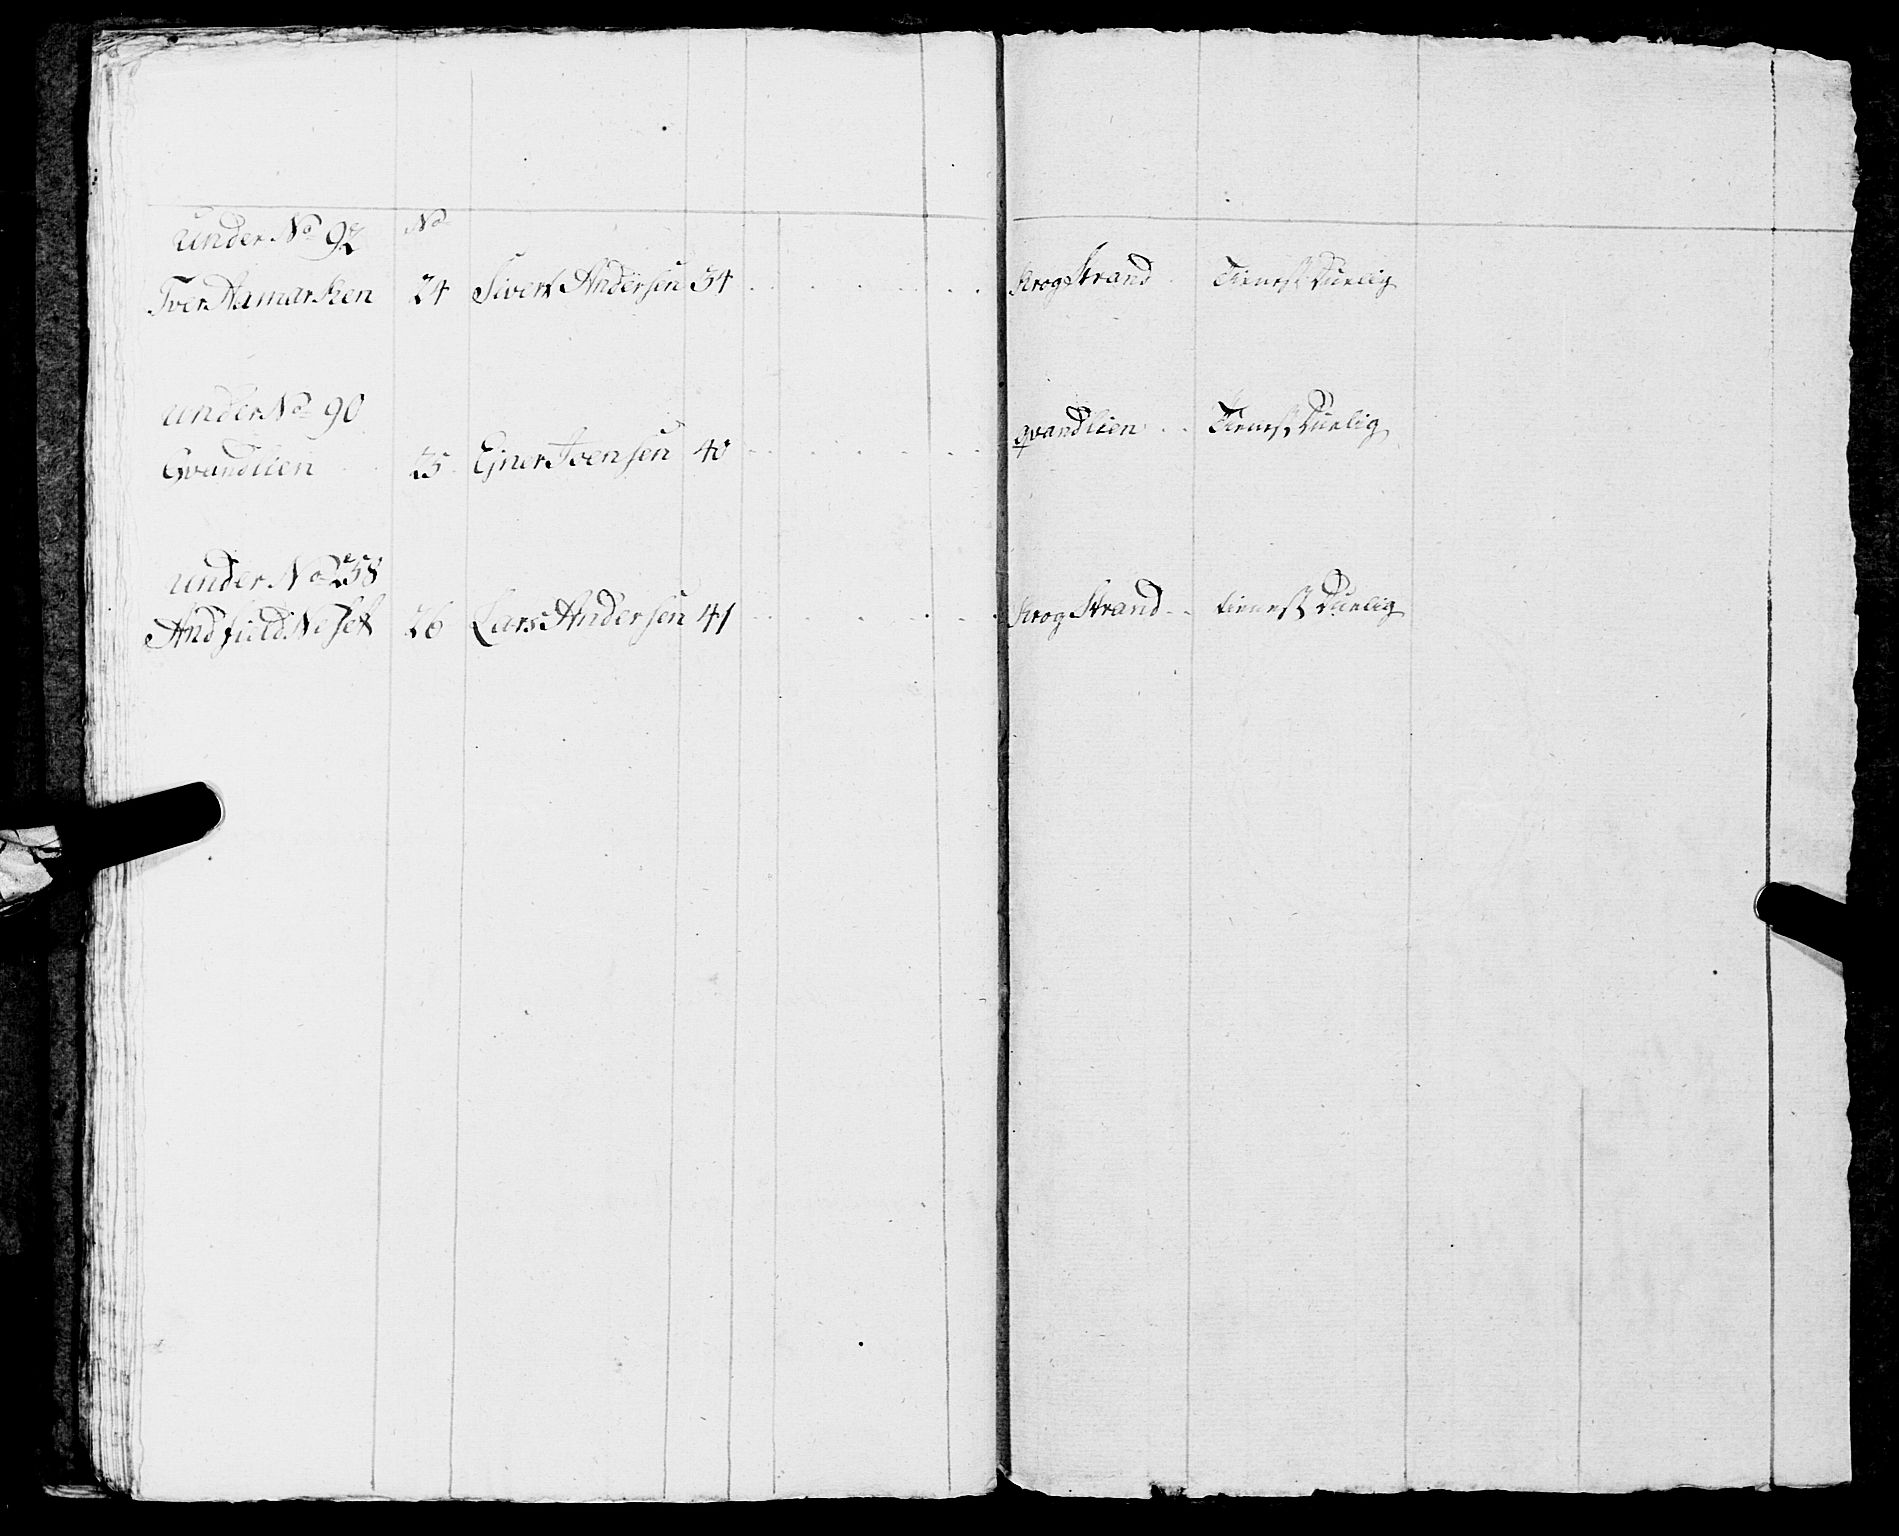 under No 92 No
Tver Hamarsken 24 Sivert Andersen 34 Krog Strand Tienest Duelig
under No 90
Qvandlien 25 Ejner Ivensen 40 qvandlien Tienest Duelig
under No 258
Andfield Neset 26 Lars Andersen 41 Krog Strand tienest Duelig